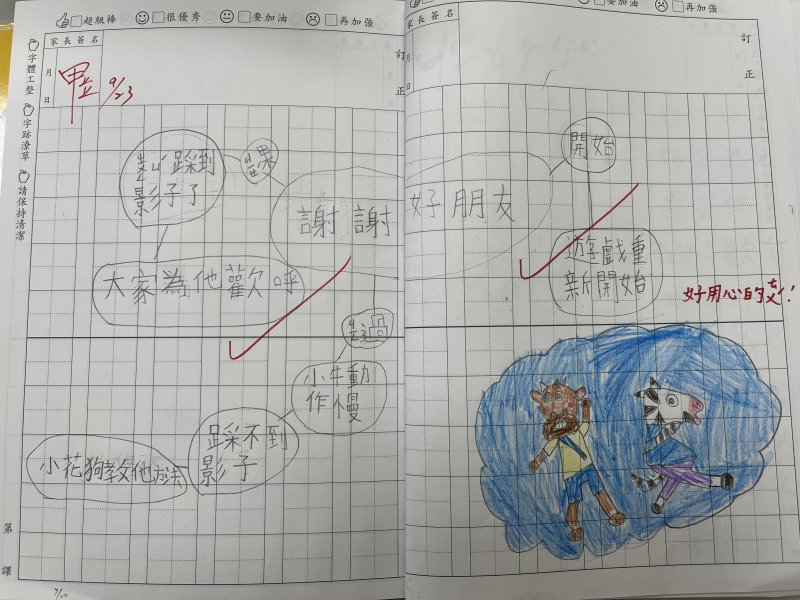 超級棒 很優秀 要加油 再加強
家長簽名
月
日
訂正
字體工整
字跡潦草
請保持清潔
甲
9/23
踩到
影子了
果
謝謝
大家為他歡呼
過
小牛動
作慢
踩不到
影子
小花狗教他方法
第
課
要加油 再加強
家長簽名
月
日
訂正
開始
好朋友
遊戲重
新開始
好用心的